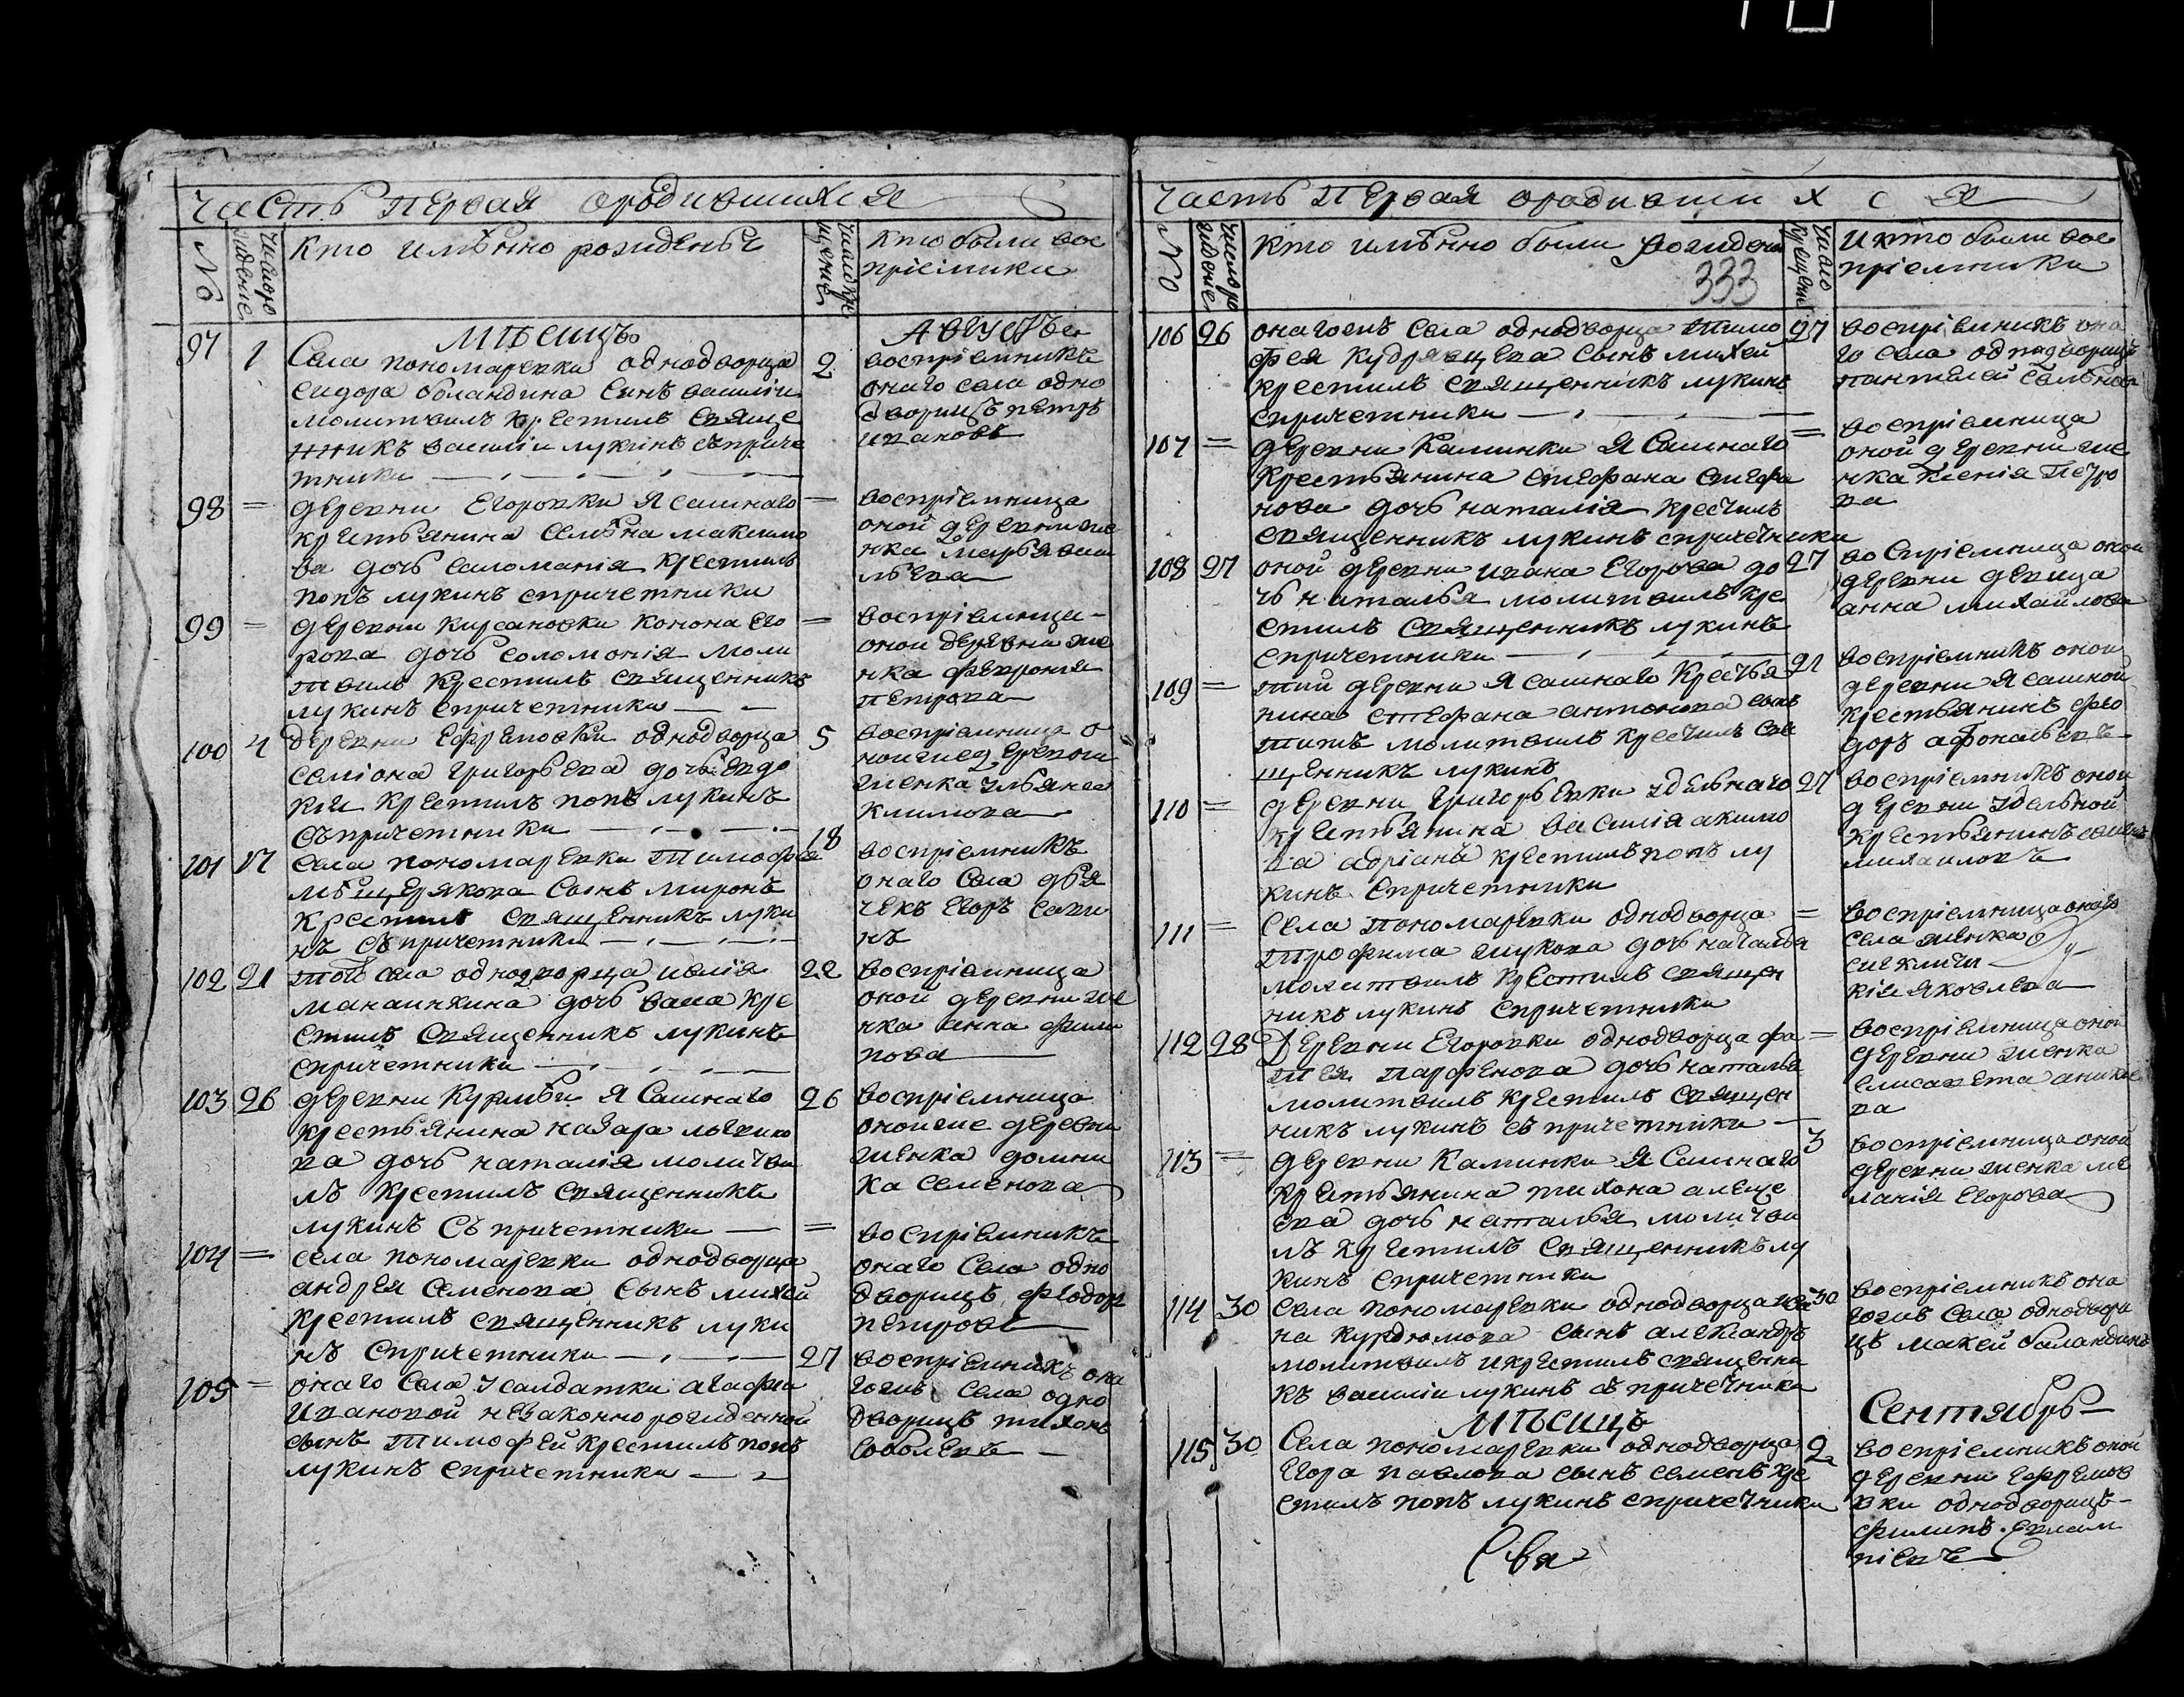 часть первая ородившихся
No
число рождение
кто имѣнно рожденъ
число крещение
кто были вос
приемники
мѣсицъ
августъ
97 1
Села пономаревки однодворца
сидора боландина Синъ василiи
молитвилъ крестилъ Свяще
нникъ василiи лукинъ съприче
тники
2
восприемникъ
онаго села одно
дворицъ петръ
ивановъ
98 =
деревни Егоровки Ясашнаго
крестьянина семѣна максимо
ва дочь саломанiя крестилъ
попъ лукинъ спричетники
=
восприемница
оной деревни же
нка марья васи
льева
99 =
деревни кирсановки конона его
рова дочь соломонiя моли
твилъ крестилъ священникъ
лукинъ спричетники
=
восприемница
оной деревни же
нка феврония
петрова
100 4
деревни Ефремовки однодворца
семiона григорьева дочь евдо
кiи крестилъ попъ лукинъ
съпричетники
5
восприемница о
ноиже деревни
женка ульянея
климова
101 17
села пономаревки тимофея
мѣщерякова Сынъ миронъ
крестилъ священникъ луки
нъ съпричетники
18
восприемникъ
онаго Села дья
чекъ егоръ сави
нъ
102 21
тогъ села однодворца иелiя
мананнкина дочь васа кре
стилъ Священникъ лукинъ
спричетники
22
восприемница
оной деревни же
нка анна фили
пова
103 26
деревни Курмъи Ясашнаго
крестьянина назара
ва дочь наталiя молитви
лъ крестилъ священникъ
лукинъ Съ причетники
26
восприемница
оноиже деревни
женка домни
ка семенова
104 =
села пономаревки однодворца
андрея семенова сынъ михей
крестилъ священникъ луки
нъ спричетники
=
восприемникъ
онаго Села одно
дворицъ Феодоръ
петровъ
105 =
онаго Села усалдатки агафии
Ивановой незаконнорожденной
сынъ тимофей крестилъ попъ
лукинъ спричетники
27
восприемникъ она
гожъ Села одно
дворицъ тихонъ
соболевъ
часть первая ородивших с я
No
число рождение
кто имѣнно были рождени
333
число крещени
икто были вос
приемники
106 26
онагожъ Села однодворца тимо
фея кудрявцева Сынъ михей
крестилъ священникъ лукинъ
спричетники
27
восприемникъ она
го села однодворицъ
пантелей семѣнов
107 =
деревни Каминки Ясашнаго
крестьянина стефана стефа
нова дочь наталiя крестилъ
священникъ лукинъ спричетники
=
восприемница
оной деревни же
нка ксенiя Петро
ва
108 27
оной деревни ивана Егорова до
чь наталья молитвилъ кре
стилъ Священникъ лукинъ
спричетники
27
восприемница оной
деревни девица
анна михаилова
109 =
тий деревни Ясашнаго крестья
нина стефана антонова сынъ
титъ молитвилъ крестилъ свя
щенникъ лукинъ
27
восприемникъ оной
деревни Ясашной
крестьянинъ фео
доръ афонасьевъ
110 =
деревни григорьевки удѣльнаго
крестьянина василiя акимо
ва адрiанъ крестилъ попъ лу
кинъ спричетники
27
восприемникъ оной
деревни удельной
крестьянинъ
михаиловъ
111 =
Села пономаревки однодворца
трофима жукова дочь наталья
молитвилъ крестилъ священ
никъ лукинъ спричетники
=
восприемница онаго
села женка
синкличи
кiя яковлева
112 28
Деревни Егоровки однодворца фа
тея парфенова дочь наталья
молитвилъ крестилъ священ
никъ лукинъ съ причетники
=
восприемница оной
деревни женка
елисавета аники
ва
113 =
деревни Каминки Ясашнаго
крестьянина тихона алеце
ева дочь наталья молитви
лъ крестилъ священникъ лу
кинъ спричетники
3
восприемница оной
деревни женка ме
ланiя Егорова
114 30
Села пономаревки однодворца ива
на курдюмова сынъ александръ
молитвилъ икрестилъ священни
къ василiи лукинъ съ причетники
30
восприемникъ она
гожъ Села однодвори
цъ макей баландинъ
мѣсицъ
Сентябрь
115 30
Села пономаревки однодворца
Егора павлова сынъ семенъ кре
стилъ попъ лукинъ спричетники
2
восприемникъ оной
деревни ефремов
вки однодворицъ
филипъ евлам
пiевъ